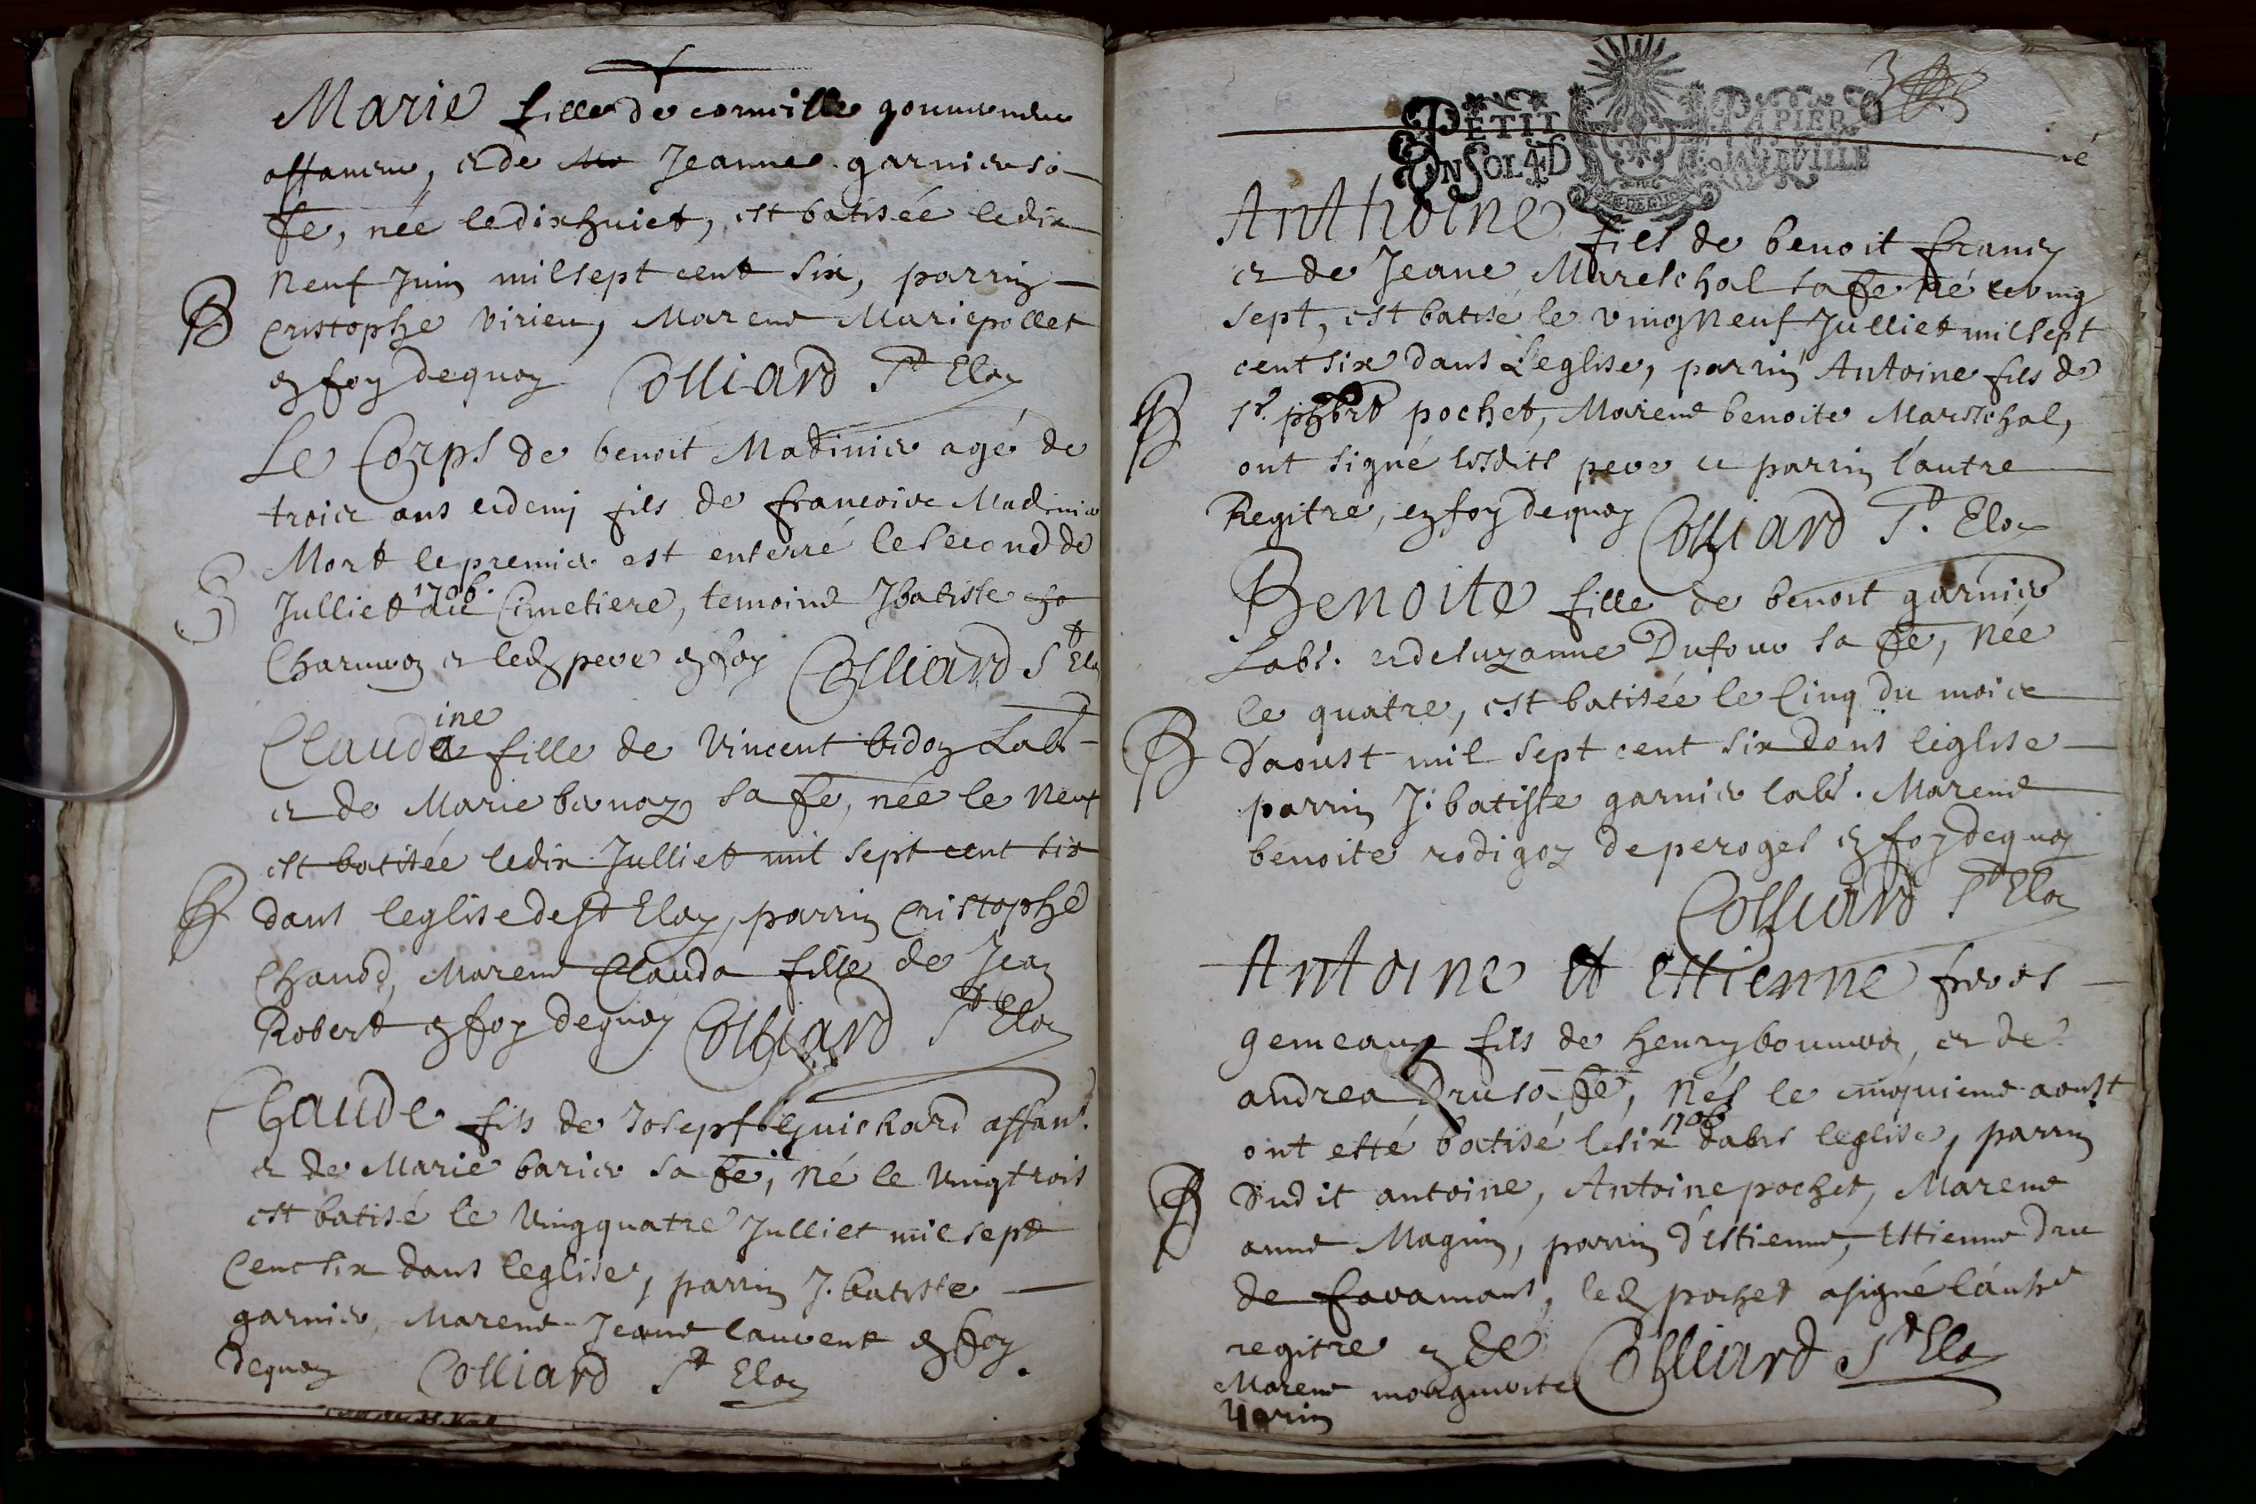 Marie fille de corneille
affaneur, et de Jeanne garnier sa
fe, née le dixhuict, est batisée le dix
neuf Juin mil sept cent six, parrin
B
cristophe virieu, Marene Marie pollet
en foy dequoy Colliard St Eloy
Le Corps de benoit Madinier agé de
troice ans et demy fils de francoise Madinier
Mort le premier est enterré le second de
S
Julliet 1706. au Cimetiere, temoins J batiste
et led pere en foy Colliard St Eloy
Claudaine fille de Vincent bidon Labr
et de Marie sa fe, née le Neuf
est batisée le dix Julliet mil sept cent six
B
dans leglise de St Eloy, parrin cristophe
Chanod, Marene Clauda fille de Jean
Robert en foy dequoy Colliard St Eloy
Claude fils de Josepf Guichard affanr.
et de Marie barier sa fe, né le Vingtrois
est batisé le Vingquatre Julliet mil sept
Cent six dans leglise, parrin J. batiste
garnier, Marene Jeane laurent en foy
dequoy Colliard St Eloy
3
PETIT PAPIER
UN SOL 4 D LA FEVILLE
Anthoine fils de benoit francy
et de Jeane Mareschal sa fe né le ving
sept, est batisé le vingneuf Julliet mil sept
cent six dans Leglise, parrin Antoine fils de
B
Sr. phbrt pochet, Marene benoite Marschal,
ont signé lesdits pere et parrin l'autre
Regitre, en foy dequoy Colliard St. Eloy
Benoite fille de benoit garnier
Labr. et de suzanne Dufour sa fe, née
le quatre, est batisée le Cinq du moice
B
daoust mil sept cent six dens leglise
parrin J. batiste garnier labr. Marene
benoite rodigoz de peroges en foy dequoy
Colliard St Eloy
Antoine et Ettienne freres
gemeaux fils de henry et de
andrea Dru sa fe, Nés le cinquieme aoust
ont esté batisé le six 1706 dans leglise, parrin
B
dudit antoine, Antoine pochet, Marene
anne Magnin, parrin d'Estienne, Estienne Dru
de faramans, led pochet a signé l'autre
regitre en de Colliard St Eloy
Marene marguerite